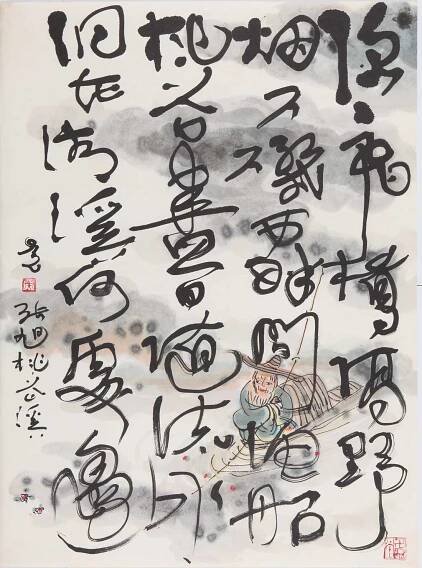 隐々飛橋隔野
烟石磯西畔問漁船
桃花盡日随流水
洞在清溪何處邊
張旭桃花溪